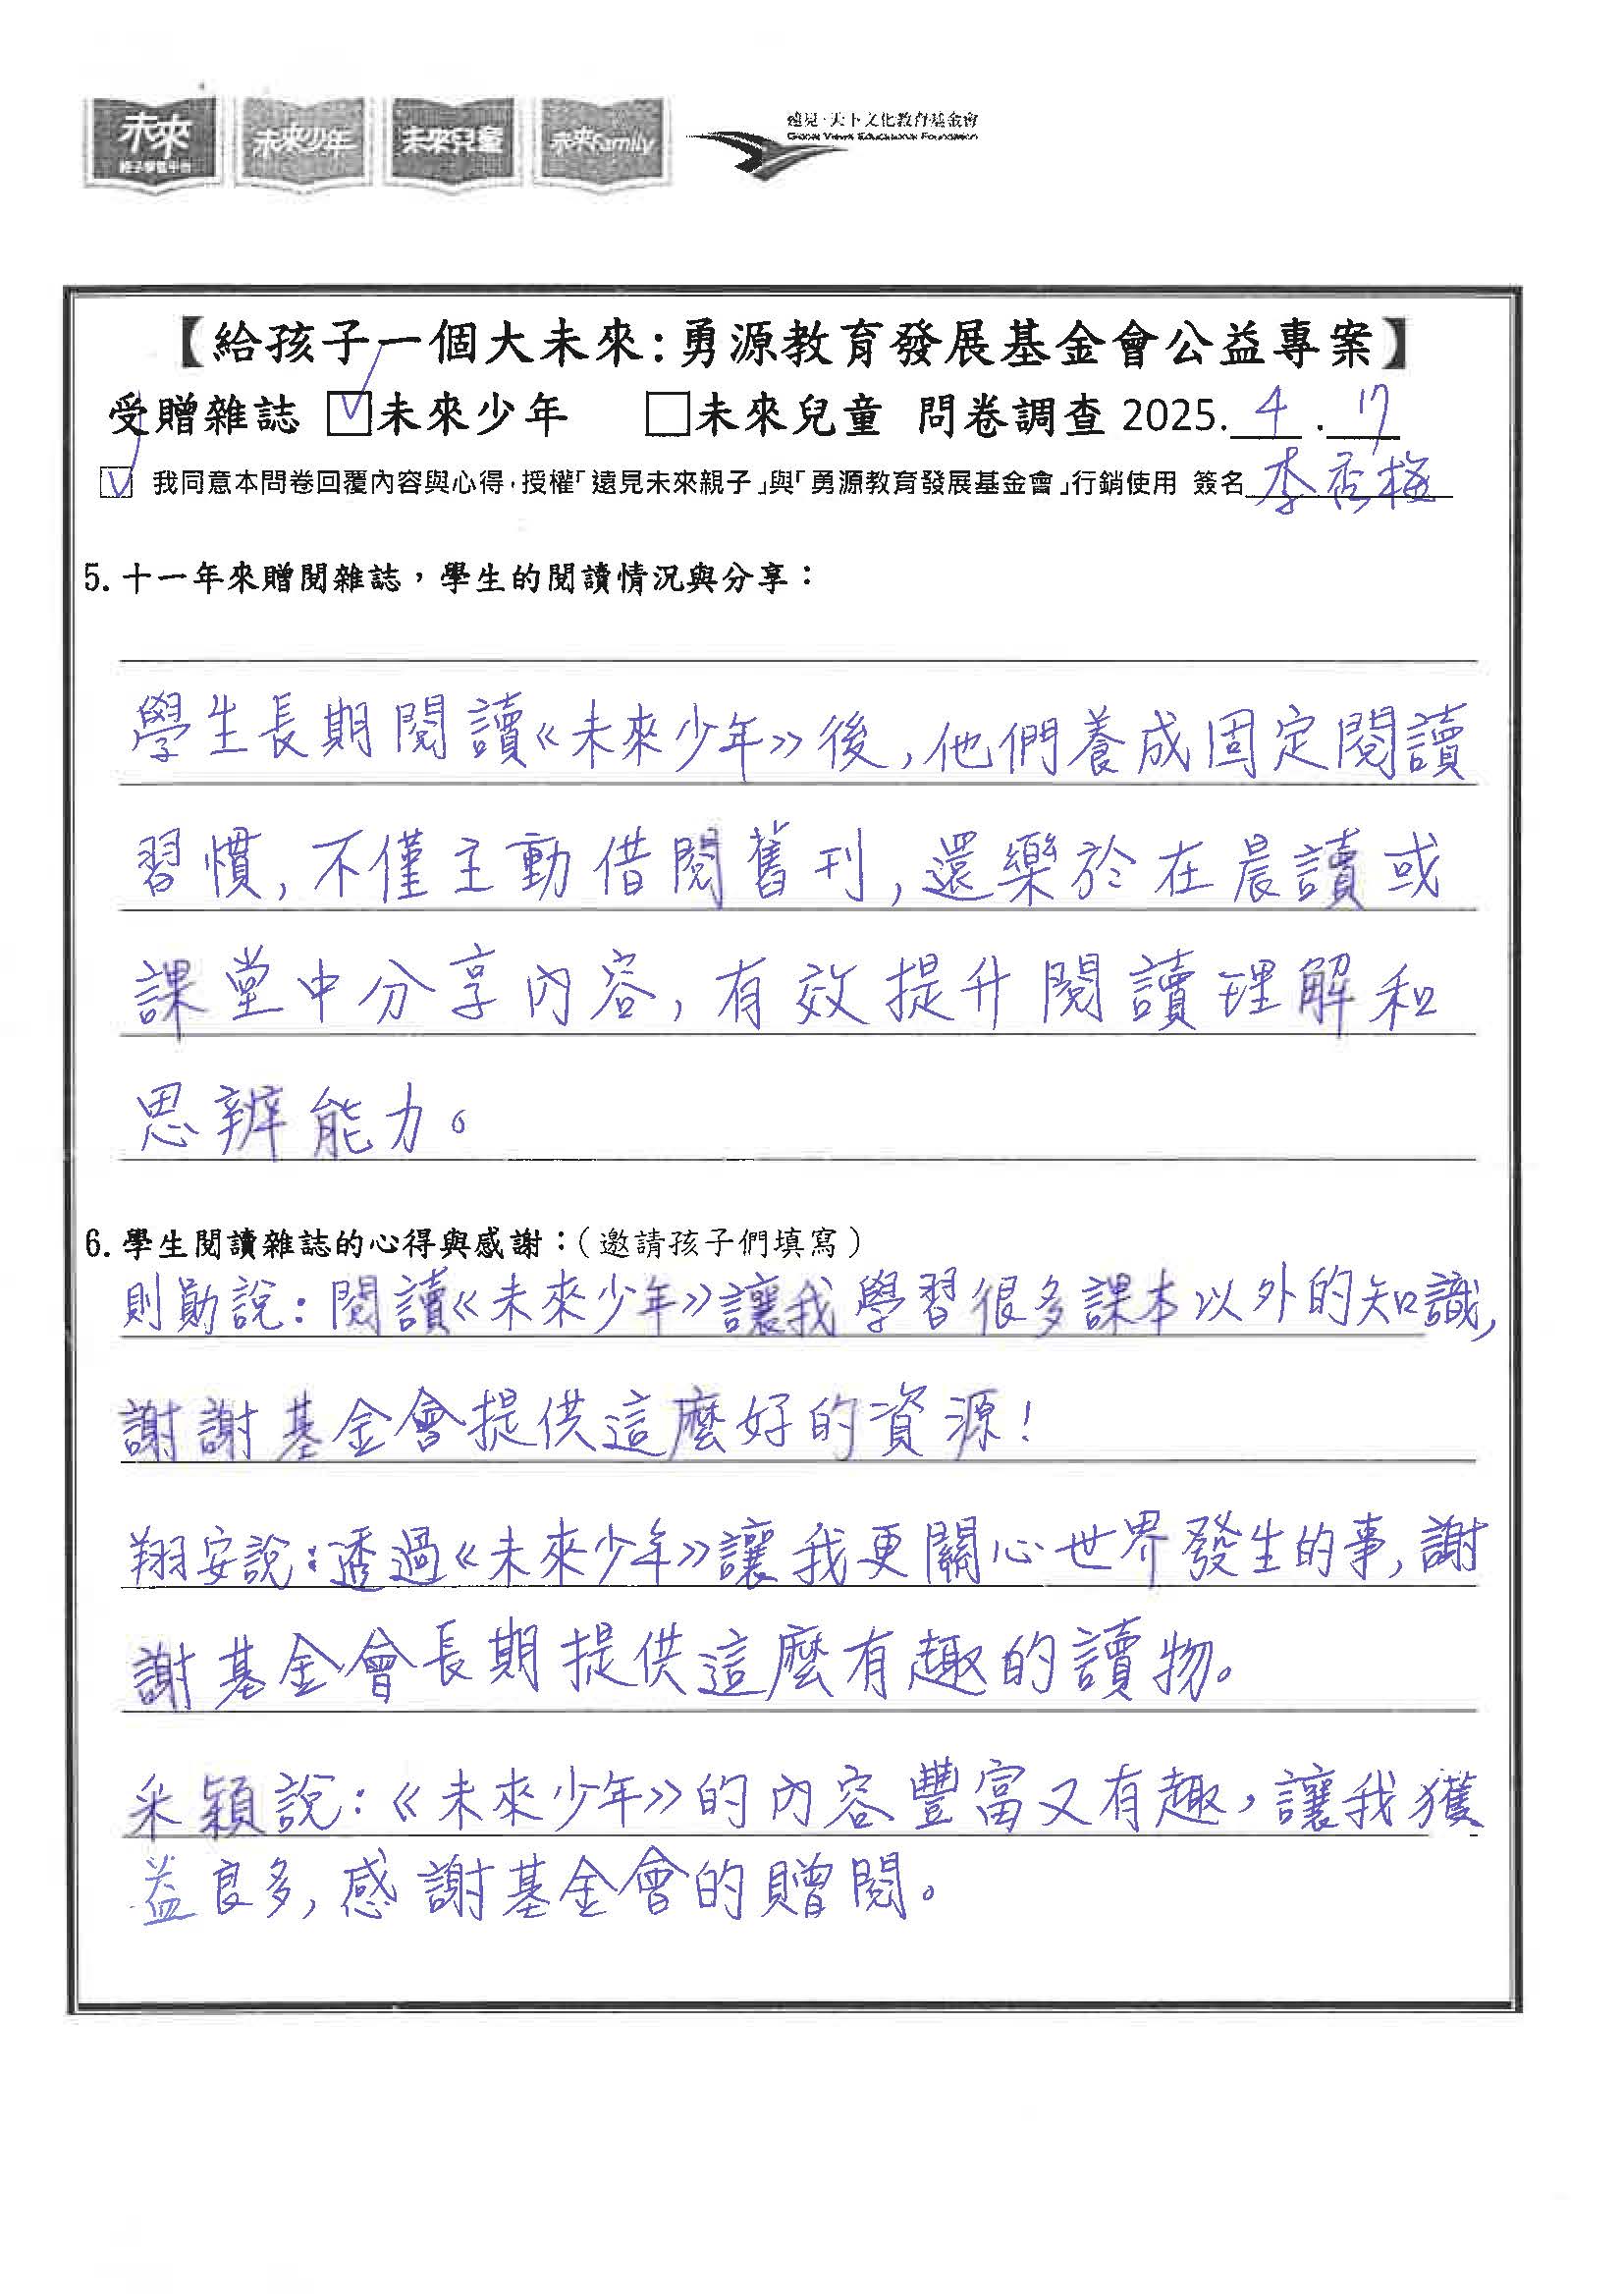 未來
親子學習平台
未來少年
未來兒童
未來Family
遠見·天下文化教育基金會
Global Views Educational Foundation
【給孩子一個大未來:勇源教育發展基金會公益專案】
受贈雜誌 ☑未來少年 □未來兒童 問卷調查 2025. 4 . 17
☑ 我同意本問卷回覆內容與心得,授權「遠見未來親子」與「勇源教育發展基金會」行銷使用 簽名 李香梅
5. 十一年來贈閱雜誌,學生的閱讀情況與分享:
學生長期閱讀《未來少年》後,他們養成固定閱讀
習慣,不僅主動借閱舊刊,還樂於在晨讀或
課堂中分享內容,有效提升閱讀理解和
思辨能力。
6. 學生閱讀雜誌的心得與感謝:(邀請孩子們填寫)
則勛說:閱讀《未來少年》讓我學習很多課本以外的知識,
謝謝基金會提供這麼好的資源!
翔安說:透過《未來少年》讓我更關心世界發生的事,謝
謝基金會長期提供這麼有趣的讀物。
采穎說:《未來少年》的內容豐富又有趣,讓我獲
益良多,感謝基金會的贈閱。